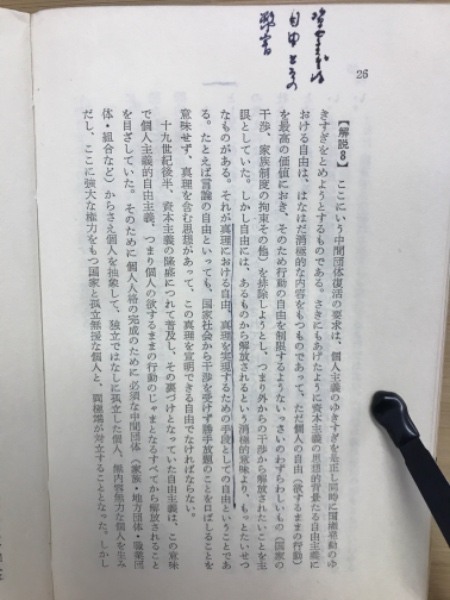 26
【解説8】 ここにいう中間団体復活の要求は、個人主義のゆきすぎを是正し同時に国家活動のゆ
きすぎをとめようとするものである。さきにもあげたように資本主義の思想的背景たる自由主義に
おける自由は、はなはだ消極的な内容をもつものであって、ただ個人の自由(欲するままの行動)
を最高の価値におき、そのため行動の自由を制限するようないっさいのわずらわしいもの(国家の
干渉、家族制度の拘束その他)を排除しようとし、つまり外からの干渉から解放されたいことを主
眼としていた。しかし自由には、あるものから解放されるという消極的意味より、もっとたいせつ
なものがある。それが真理における自由、真理を実現するための手段としての自由ということであ
る。たとえば言論の自由といっても、国家社会から干渉を受けず勝手放題のことを口ばしることを
意味せず、真理を含む思想があって、この真理を宣明できる自由でなければならない。
十九世紀後半、資本主義の隆盛につれて普及し、その裏づけとなっていた自由主義は、この意味
で個人主義的自由主義、つまり個人の欲するままの行動のじゃまとなるすべてから解放されること
を目ざしていた。そのために個人人格の完成のために必須な中間団体(家族・地方団体・職業団
体・組合など)からさえ個人を抽象して、独立ではなしに孤立した個人、無内容無力な個人を生み
だし、ここに強大な権力をもつ国家と孤立無援な個人と、両極端が対立することとなった。しかし
自由とその
弊害